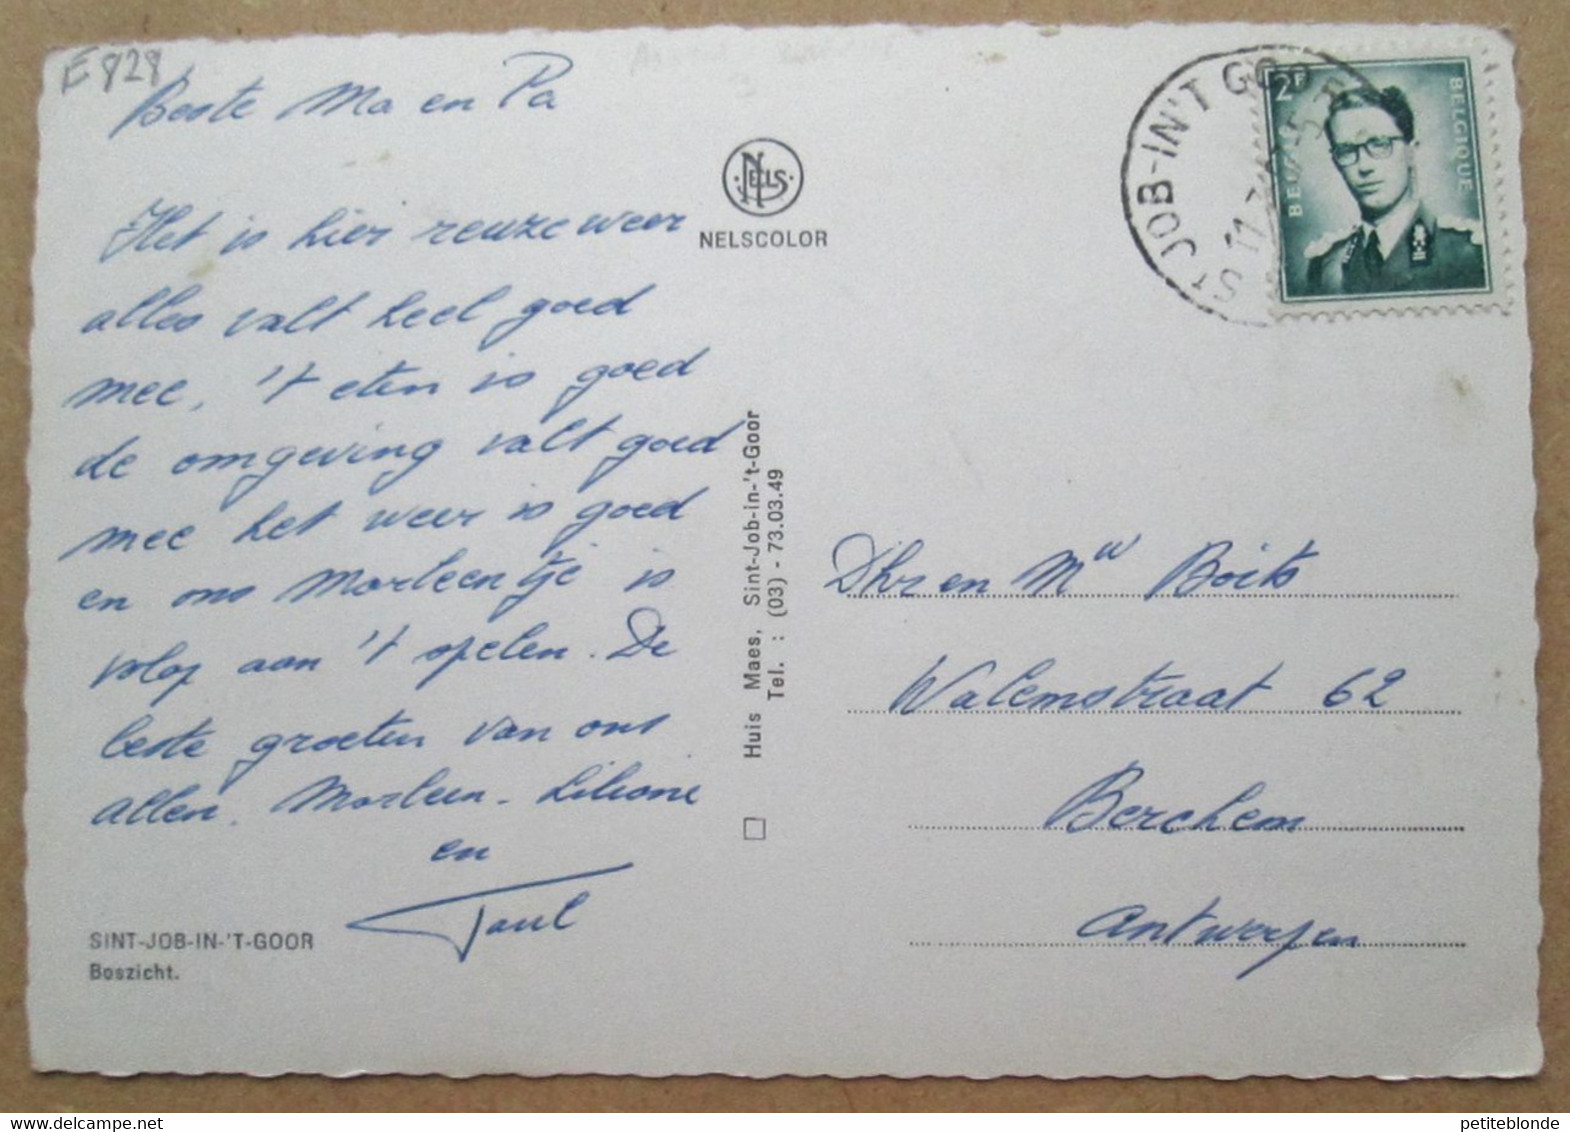 E 828
Beste Ma en Pa
Het is hier reuze weer
alles valt heel goed
mee, 't eten is goed
de omgeving valt goed
mee het weer is goed
en ons Marleentje is
volop aan 't spelen. De
beste groeten van ons
allen. Marleen - Liliane
en
Paul
SINT-JOB-IN-'T-GOOR
Boszicht.
NELS
NELSCOLOR
Huis Maes, Sint-Job-in-'t-Goor
Tel. : (03) - 73.03.49
ST JOB-IN'T GOOR
11
2F
BELGIQUE
Dhr en Mw Boits
Walemstraat 62
Berchem
Antwerpen
petiteblonde